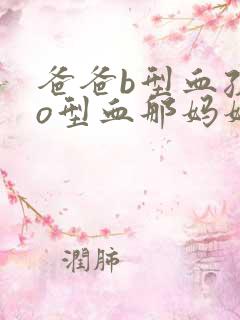 爸爸b型血孩
o型血那妈妈
潤肺